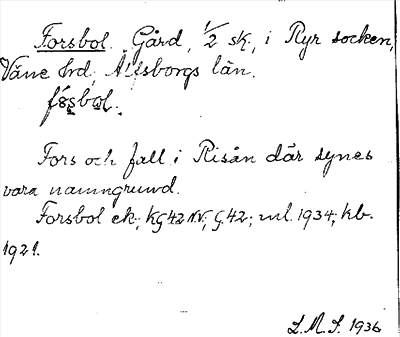 Forsbol. Gård, 1/2 sk., i Ryr socken,
Väne hrd, Älfsborgs län.
Fors och fall i Risån där synes
vara namngrund.
Forsbol ek; KG 42 NV; G. 42; ml. 1934; kb.
1921.
L.M.S. 1936